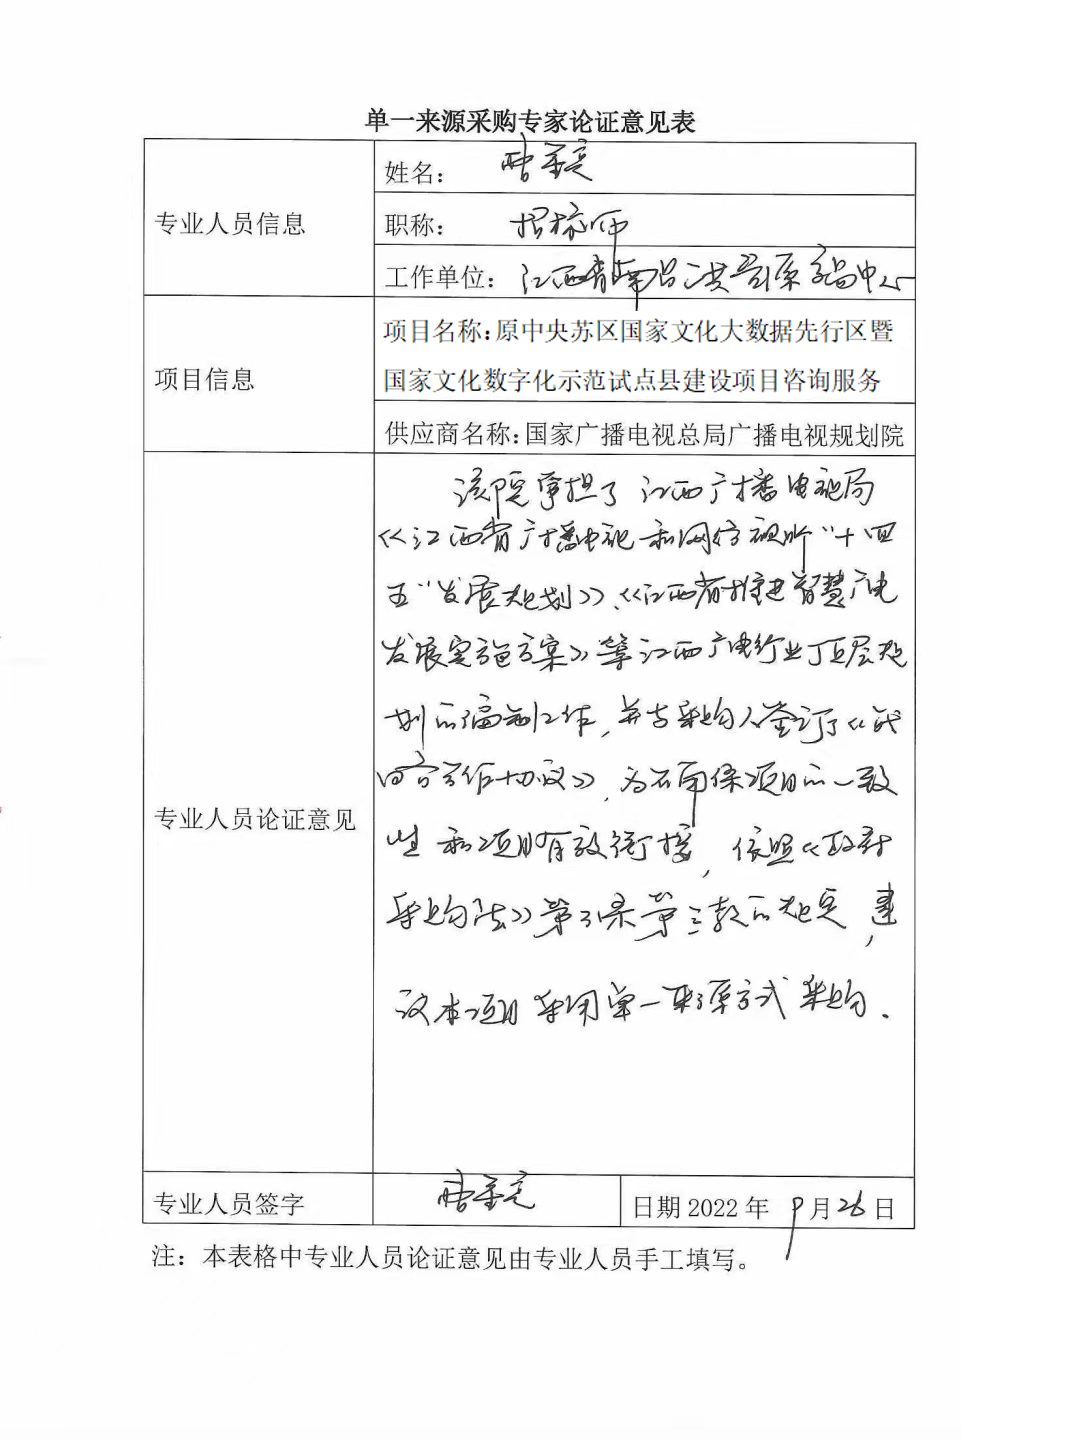 单一来源采购专家论证意见表
专业人员信息
姓名：
职称：招标师
工作单位：江西省南昌洪
项目信息
项目名称：原中央苏区国家文化大数据先行区暨
国家文化数字化示范试点县建设项目咨询服务
供应商名称：国家广播电视总局广播电视规划院
专业人员论证意见
该院承担了江西广播电视局
《江西省广播电视和网络视听“十四
五”发展规划》、《江西省推进智慧广电
发展实施方案》等江西广电行业顶层规
划的编制工作，并与采购人签订了《战
略合作协议》，为确保项目的一致
性和项目有效衔接，依照《政府
采购法》第31条第三款的规定，建
议本项目采用单一来源方式采购.
专业人员签字
日期 2022 年 9 月 26 日
注：本表格中专业人员论证意见由专业人员手工填写。